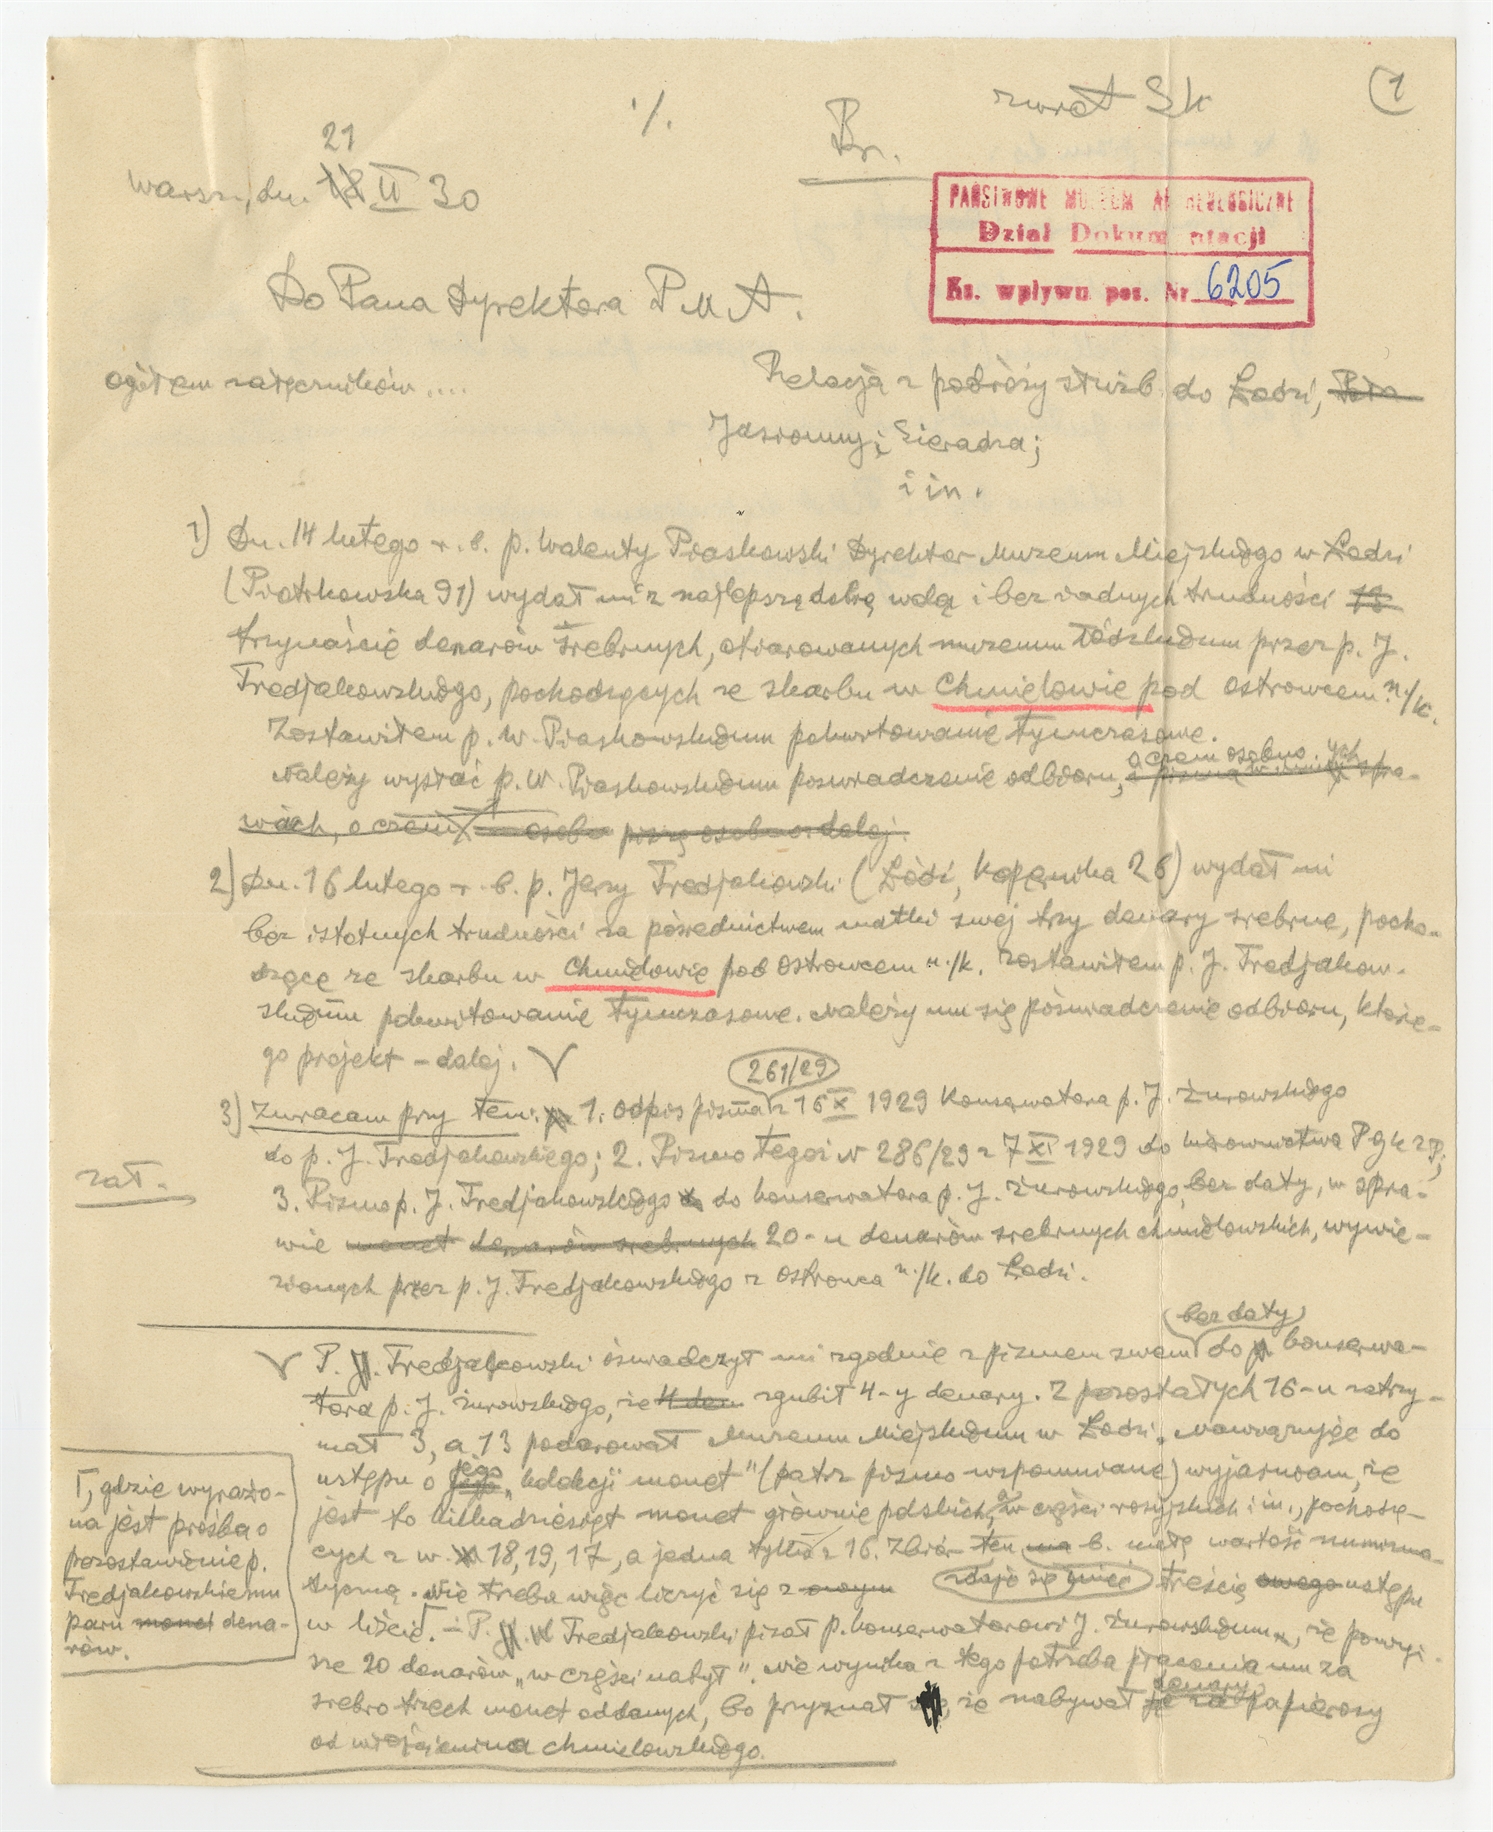 zwrot
1
./.
Br.
21
Warsz., dn. 18 II 30
PAŃSTWOWE MUZEUM ARCHEOLOGICZNE
Dział Dokumentacji
Ks. wpływu poz. Nr 6205
Do Pana Dyrektora P M A.
ogółem załączników....
Relacja z podróży służb. do Łodzi,
Jasionny i Sieradza;
i in.
1) Dn. 14 lutego r. b. p. Walenty Piaskowski Dyrektor Muzeum Miejskiego w Łodzi
(Piotrkowska 91) wydał mi z najlepszą dobrą wolą i bez żadnych trudności 13
trzynaście denarów srebrnych, ofiarowanych muzeum łódzkiemu przez p. J.
Fredjakowskiego, pochodzących ze skarbu w Chmielowie pod Ostrowcem n./K.
Zostawiłem p. W. Piaskowskiemu pokwitowanie tymczasowe.
o czem osobno.
Należy wysłać p. W. Piaskowskiemu poświadczenie odbioru, a pismo w innych spra-
wach, o czem osobno piszę osobno dalej.
2) Dn. 16 lutego r. b. p. Jerzy Fredjakowski (Łódź, Kopernika 26) wydał mi
bez istotnych trudności za pośrednictwem matki swej trzy denary srebrne, pocho-
dzące ze skarbu w Chmielowie pod Ostrowcem n./K. Zostawiłem p. J. Fredjakow-
skiemu pokwitowanie tymczasowe. Należy mu się poświadczenie odbioru, które-
go projekt – dalej. V
261/29
3) Zwracam przy tem: 1. odpis pisma z 16 X 1929 Konserwatora p. J. Żurowskiego
do p. J. Fredjakowskiego; 2. Pismo tegoż N 286/29 z 7 XI 1929 do kierownictwa P G K Z P;
zał.
3. Pismo p. J. Fredjakowskiego do konserwatora p. J. Żurowskiego, bez daty, w spra-
wie monet denarów srebrnych 20-u denarów srebrnych chmielowskich, wywie-
zionych przez p. J. Fredjakowskiego z Ostrowca n./K. do Łodzi.
bez daty
V P. J. Fredjakowski oświadczył mi zgodnie z pismem swem do konserwa-
tora p. J. Żurowskiego, że 4 den zgubił 4-y denary. Z pozostałych 16-u zatrzy-
mał 3, a 13 podarował Muzeum Miejskiemu w Łodzi. Nawiązując do
ustępu o jego „kolekcji monet" (patrz pismo wspomniane) wyjaśniam, że
jest to kilkadziesiąt monet głównie polskich, a w części rosyjskich i in., pochodzą-
cych z w. 18, 19, 17, a jedna tylko z 16. Zbiór ten ma b. małą wartość numizma-
tyczną. Nie trzeba więc liczyć się z zdaje się mieć treścią owego ustępu
w liście Γ. – P. J. Fredjakowski pisał p. konserwatorowi J. Żurowskiemu, że powyż-
sze 20 denarów „w części nabył". Nie wynika z tego potrzeba płacenia mu za
denary
srebro trzech monet oddanych, bo przyznał, że nabywał je za papierosy
od wieśniaka chmielowskiego.
Γ, gdzie wyrażo-
na jest prośba o
pozostawienie p.
Fredjakowskiemu
paru monet dena-
rów.